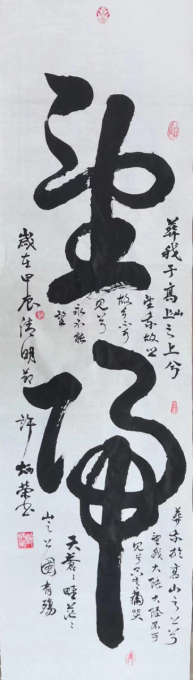 望歸
葬我于高山之上兮
望我故乡
故乡不可
见兮
永不能
忘
葬我於高山之上兮
望我大陆大陆不可
见兮只有痛哭
天苍苍野茫茫
山之上国有殇
歲在甲辰清明节许炳荣书